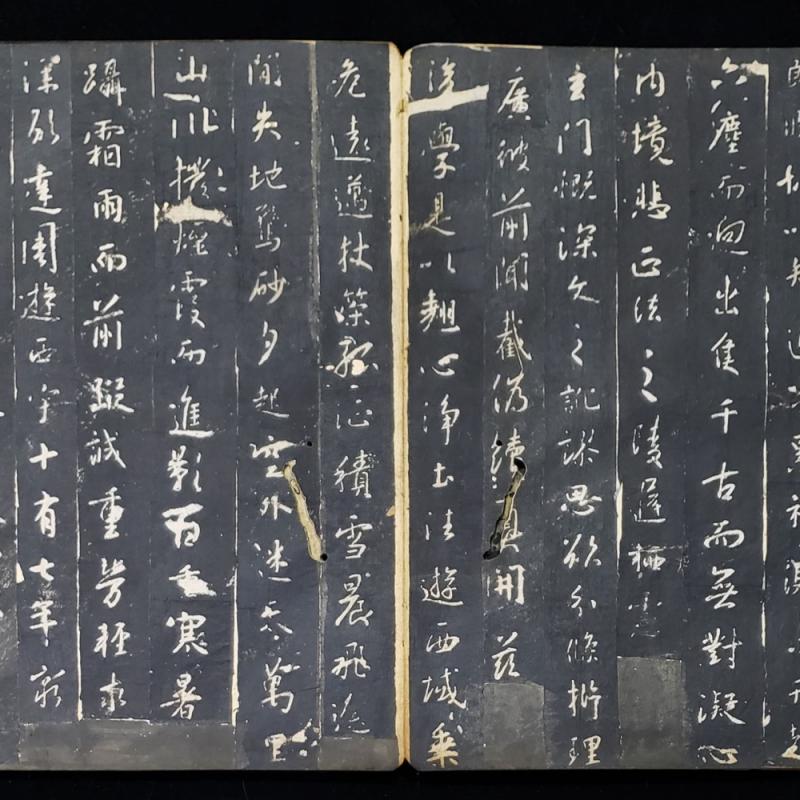 故以智通无累神測未形超
六塵而迥出隻千古而無對凝心
内境悲正法之陵遲栖慮
玄門慨深文之訛謬思欲分條析理
廣彼前聞截偽續真開茲
後學是以翹心淨土法遊西域乘
危遠邁杖策孤征積雪晨飛途
間失地驚砂夕起空外迷天萬里
山川撥煙霞而進影百重寒暑
躡霜雨而前蹤誠重勞輕求
深願達周遊西宇十有七年窮